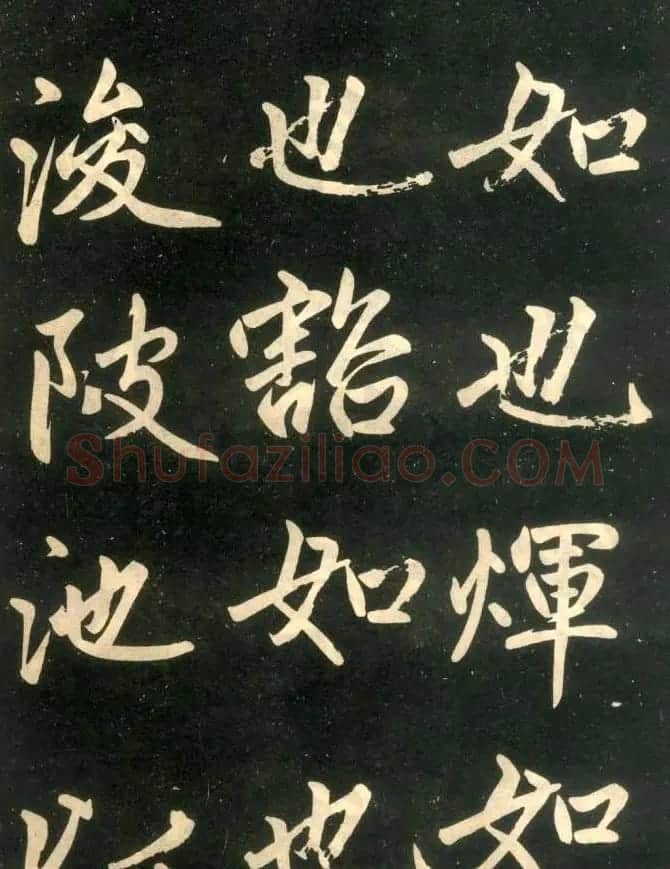 如也煇如
也豁如也
浚陂池
Shufaziliao.COM